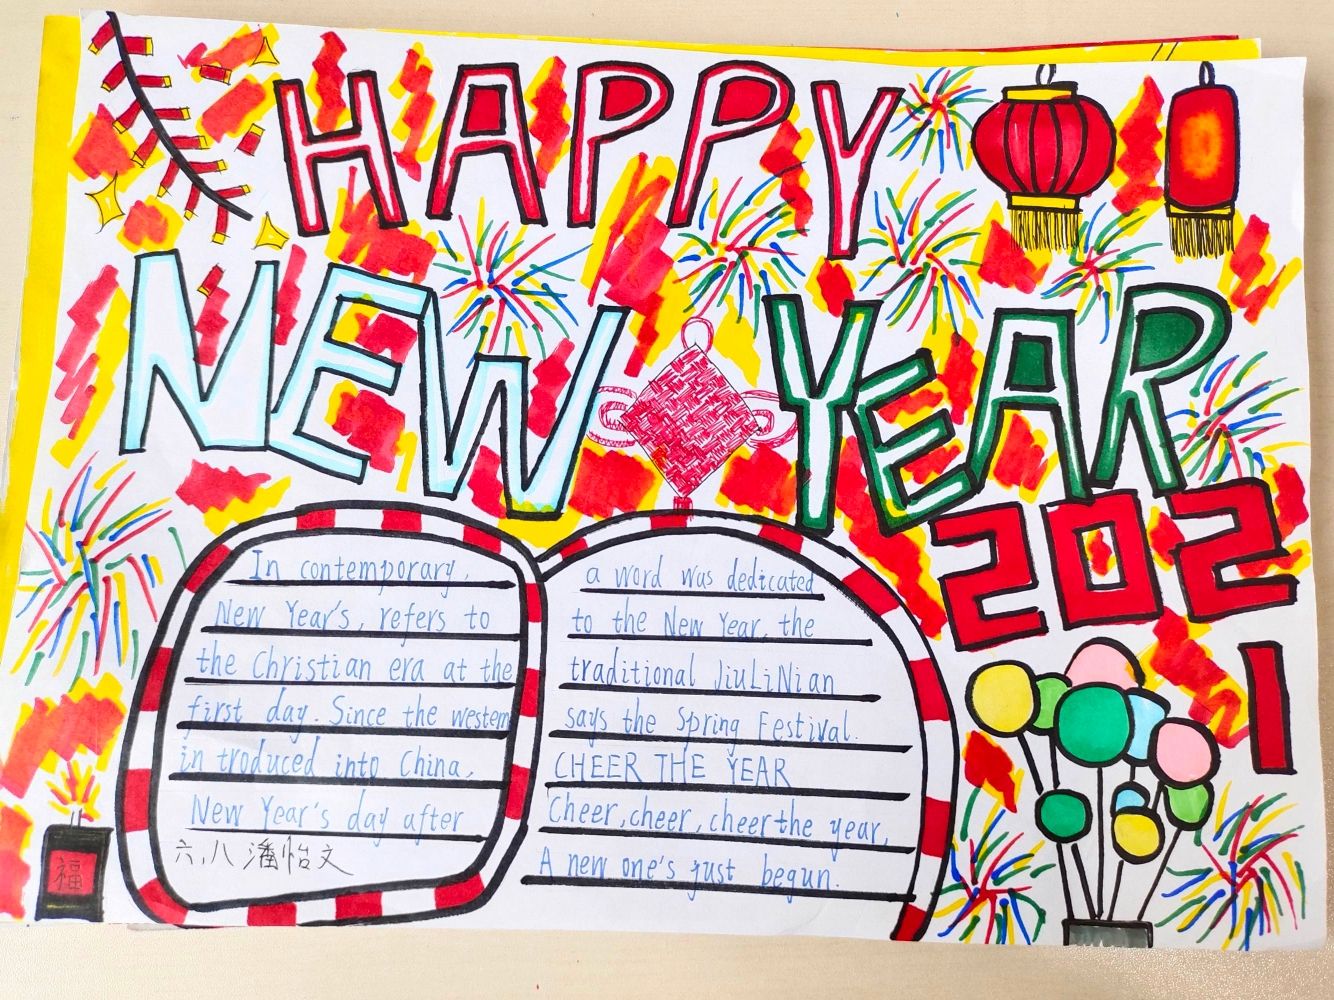 HAPPY
NEW YEAR
2021
In contemporary,
New Year's, refers to
the Christian era at the
first day. Since the western
in troduced into China,
New Year's day after
六.八 潘怡文
a word was dedicated
to the New Year, the
traditional JiuLiNian
says the Spring Festival.
CHEER THE YEAR
Cheer, cheer, cheer the year,
A new one's just begun.
福